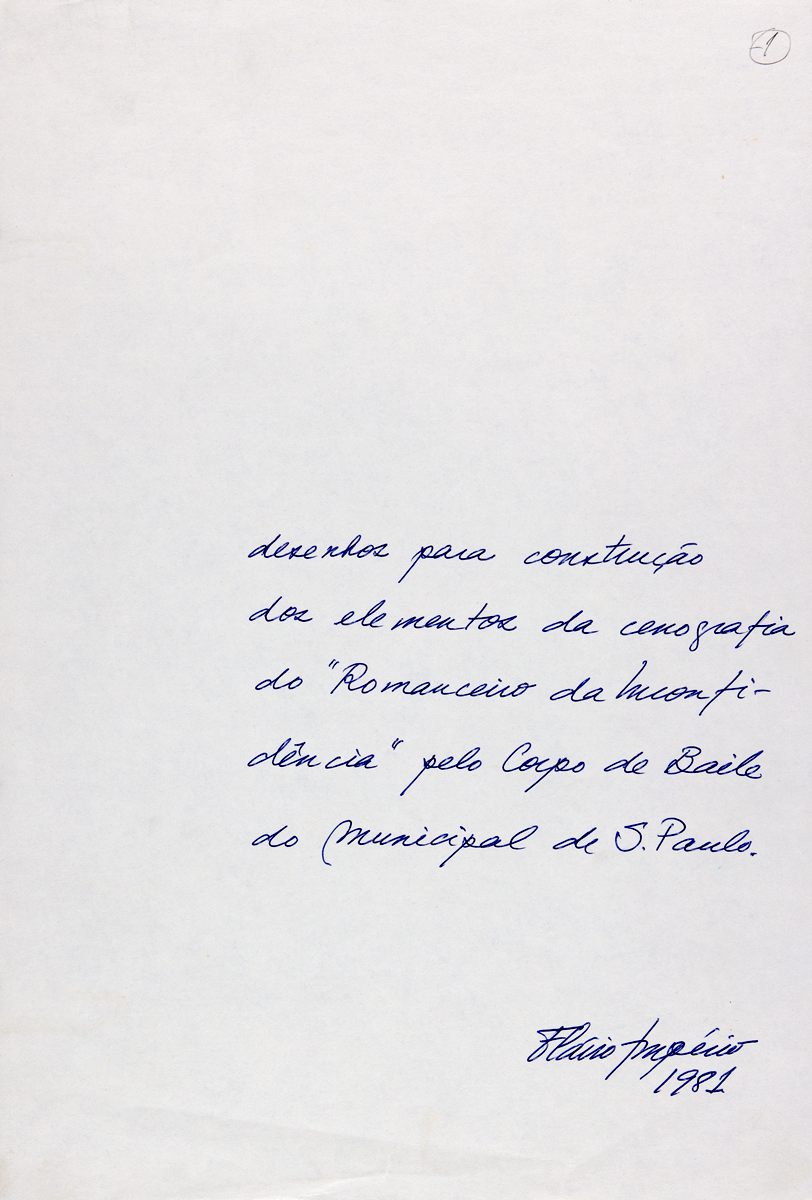 1
desenhos para construção
dos elementos da cenografia
do "Romanceiro da Inconfi-
dência" pelo Corpo de Baile
do Municipal de S. Paulo.
Flávio Império
1981